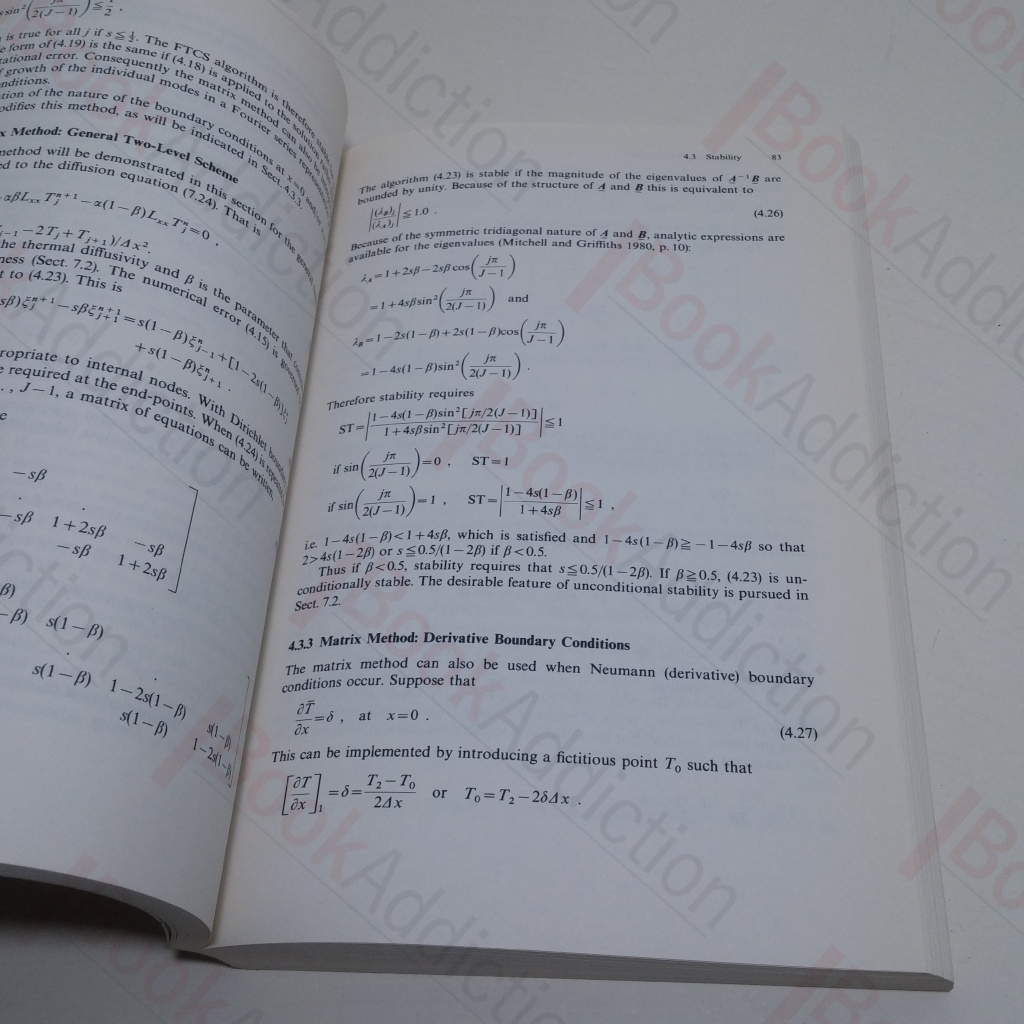 s sin²(jπ/2(J−1)) ≦ 1/2 .
is true for all j if s ≦ ½. The FTCS algorithm is therefore
e form of (4.19) is the same if (4.18) is applied to the solution
tational error. Consequently the matrix method can also be
f growth of the individual modes in a Fourier series
nditions.
tion of the nature of the boundary conditions at x=0 and
odifies this method, as will be indicated in Sect. 4.3.3.
x Method: General Two-Level Scheme
method will be demonstrated in this section for the general
ed to the diffusion equation (7.24). That is
αβL_xx T_j^{n+1} − α(1−β)L_xx T_j^n = 0 ,
j−1 − 2T_j + T_{j+1})/Δx².
the thermal diffusivity and β is the parameter that
ness (Sect. 7.2). The numerical error (4.15) is
t to (4.23). This is
sβ)ξ_j^{n+1} − sβξ_{j+1}^{n+1} = s(1−β)ξ_{j−1}^n + [1−2s(1−β)]ξ_j^n
+ s(1−β)ξ_{j+1}^n .
ropriate to internal nodes. With Dirichlet
e required at the end-points. When (4.24) is
. , J−1, a matrix of equations can be written
e
−sβ
.
−sβ 1+2sβ −sβ
−sβ 1+2sβ
β)
−β) s(1−β)
.
s(1−β) 1−2s(1−β) s(1−β)
s(1−β) 1−2s(1−β)
4.3 Stability 83
The algorithm (4.23) is stable if the magnitude of the eigenvalues of A⁻¹B are
bounded by unity. Because of the structure of A and B this is equivalent to
|(λ_B)_j/(λ_A)_j| ≦ 1.0 . (4.26)
Because of the symmetric tridiagonal nature of A and B, analytic expressions are
available for the eigenvalues (Mitchell and Griffiths 1980, p. 10):
λ_A = 1+2sβ−2sβ cos(jπ/J−1)
= 1+4sβ sin²(jπ/2(J−1)) and
λ_B = 1−2s(1−β)+2s(1−β)cos(jπ/J−1)
= 1−4s(1−β)sin²(jπ/2(J−1)) .
Therefore stability requires
ST = |1−4s(1−β)sin²[jπ/2(J−1)] / 1+4sβ sin²[jπ/2(J−1)]| ≦ 1
if sin(jπ/2(J−1)) = 0 , ST = 1
if sin(jπ/2(J−1)) = 1 , ST = |1−4s(1−β)/1+4sβ| ≦ 1 ,
i.e. 1−4s(1−β)<1+4sβ, which is satisfied and 1−4s(1−β)≧−1−4sβ so that
2>4s(1−2β) or s≦0.5/(1−2β) if β<0.5.
Thus if β<0.5, stability requires that s≦0.5/(1−2β). If β≧0.5, (4.23) is un-
conditionally stable. The desirable feature of unconditional stability is pursued in
Sect. 7.2.
4.3.3 Matrix Method: Derivative Boundary Conditions
The matrix method can also be used when Neumann (derivative) boundary
conditions occur. Suppose that
∂T̄/∂x = δ , at x=0 . (4.27)
This can be implemented by introducing a fictitious point T₀ such that
[∂T/∂x]₁ = δ = T₂−T₀/2Δx or T₀ = T₂−2δΔx .
BookAddiction